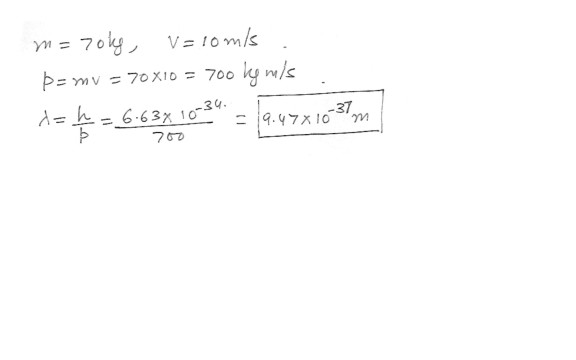 m = 70kg, v = 10 m/s .
p = mv = 70×10 = 700 kg m/s .
λ = h/p = 6.63× 10^-34. / 700 = 9.47×10^-37 m